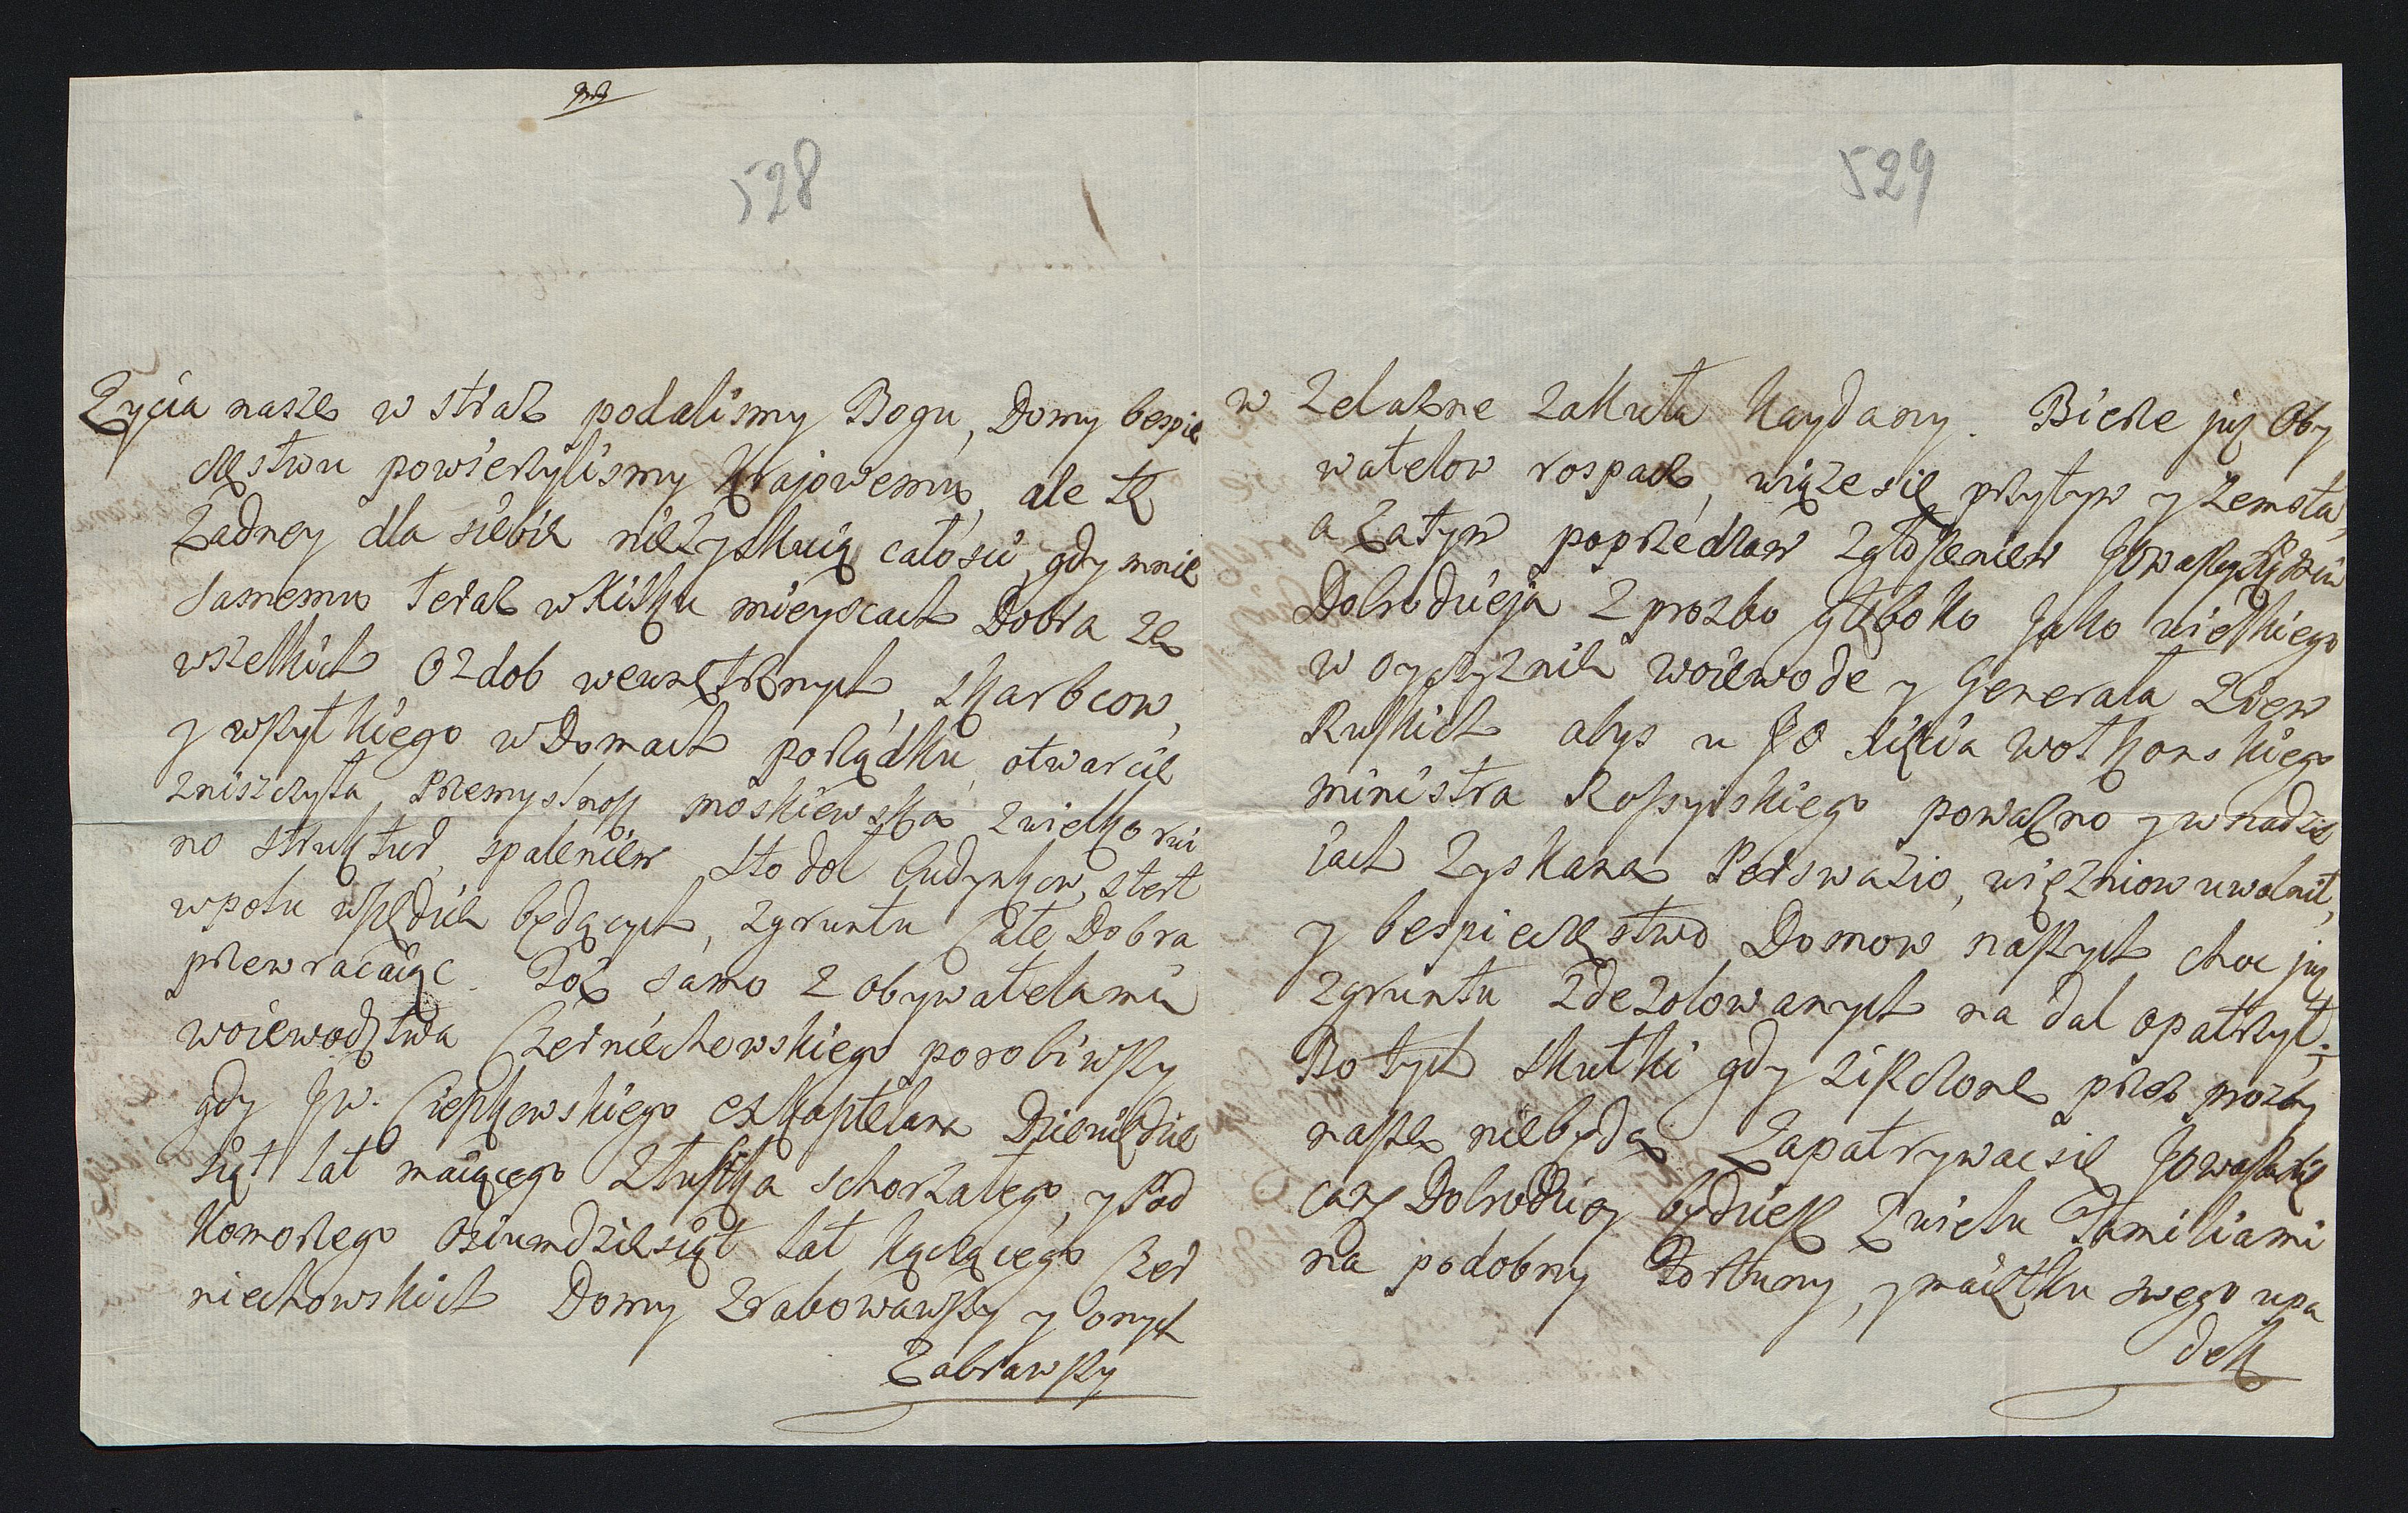 528
Zycia nasze w straz podalismy Bogu, Domy bespie
częstwu powierzylismy Krajowemu, ale te
Zadney dla siebie niezyskuią całości, gdy mnie
Samemu teraz w Kilku mieyscach Dobra ze
wszelkich Ozdob wewnętrznych, skarbcow,
y wszytkiego w Domach porządku, otwarcie
zniszczyła przemysłnosc moskiewska, z wielką rui
no struktur, spaleniem stodoł budynkow, stert
w polu wszędzie będących, z gruntu Całe Dobra
przewracaiąc. Toz samo z obywatelami
woiewodztwa Czerniechowskiego porobiwszy
gdy JW. Ciepkowskiego exkasztelana Dziewiędzie
siąt lat maiącego z łuszka schorzałego, y Pod
Komorzego osiumdziesiąt lat kączącego Czer
niechowskich Domy zrabowawszy y onych
Zabrawszy
529
w zelazne zakuła kaydany. Bierze juz Oby
watelow rospacz, wiąze się przytym y zemsta,
a zatym poprzedzam zgłoszeniem JOwaszey Xcia
Dobrodzieja z prozbo głęboko Jako wielkiego
w oyczyznie woiewode y Generała Ziem
Ruskich abys u JO Xięcia Wołkonskiego
ministra Rossyiskiego powazno y w nadzie
iach zyskana Perswazio, więzniow uwolnił,
y bespieczęstwo Domow naszych choc juz
z gruntu zdezolowanych na dal opatrzył;
Bo tych skutki gdy ziszczone przez prozby
nasze niebędą Zapatrywac się JOwasza Xię
caz Dobrodziey będziesz z wielu Familiami
na podobny Fortuny, y maiątku swego upa
dek